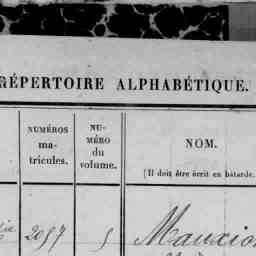 RÉPERTOIRE ALPHABÉTIQUE.
NUMÉROS
ma-
tricules.
NU-
MÉRO
du
volume.
NOM.
(Il doit être écrit en bâtarde.
2097 5 Mauxion